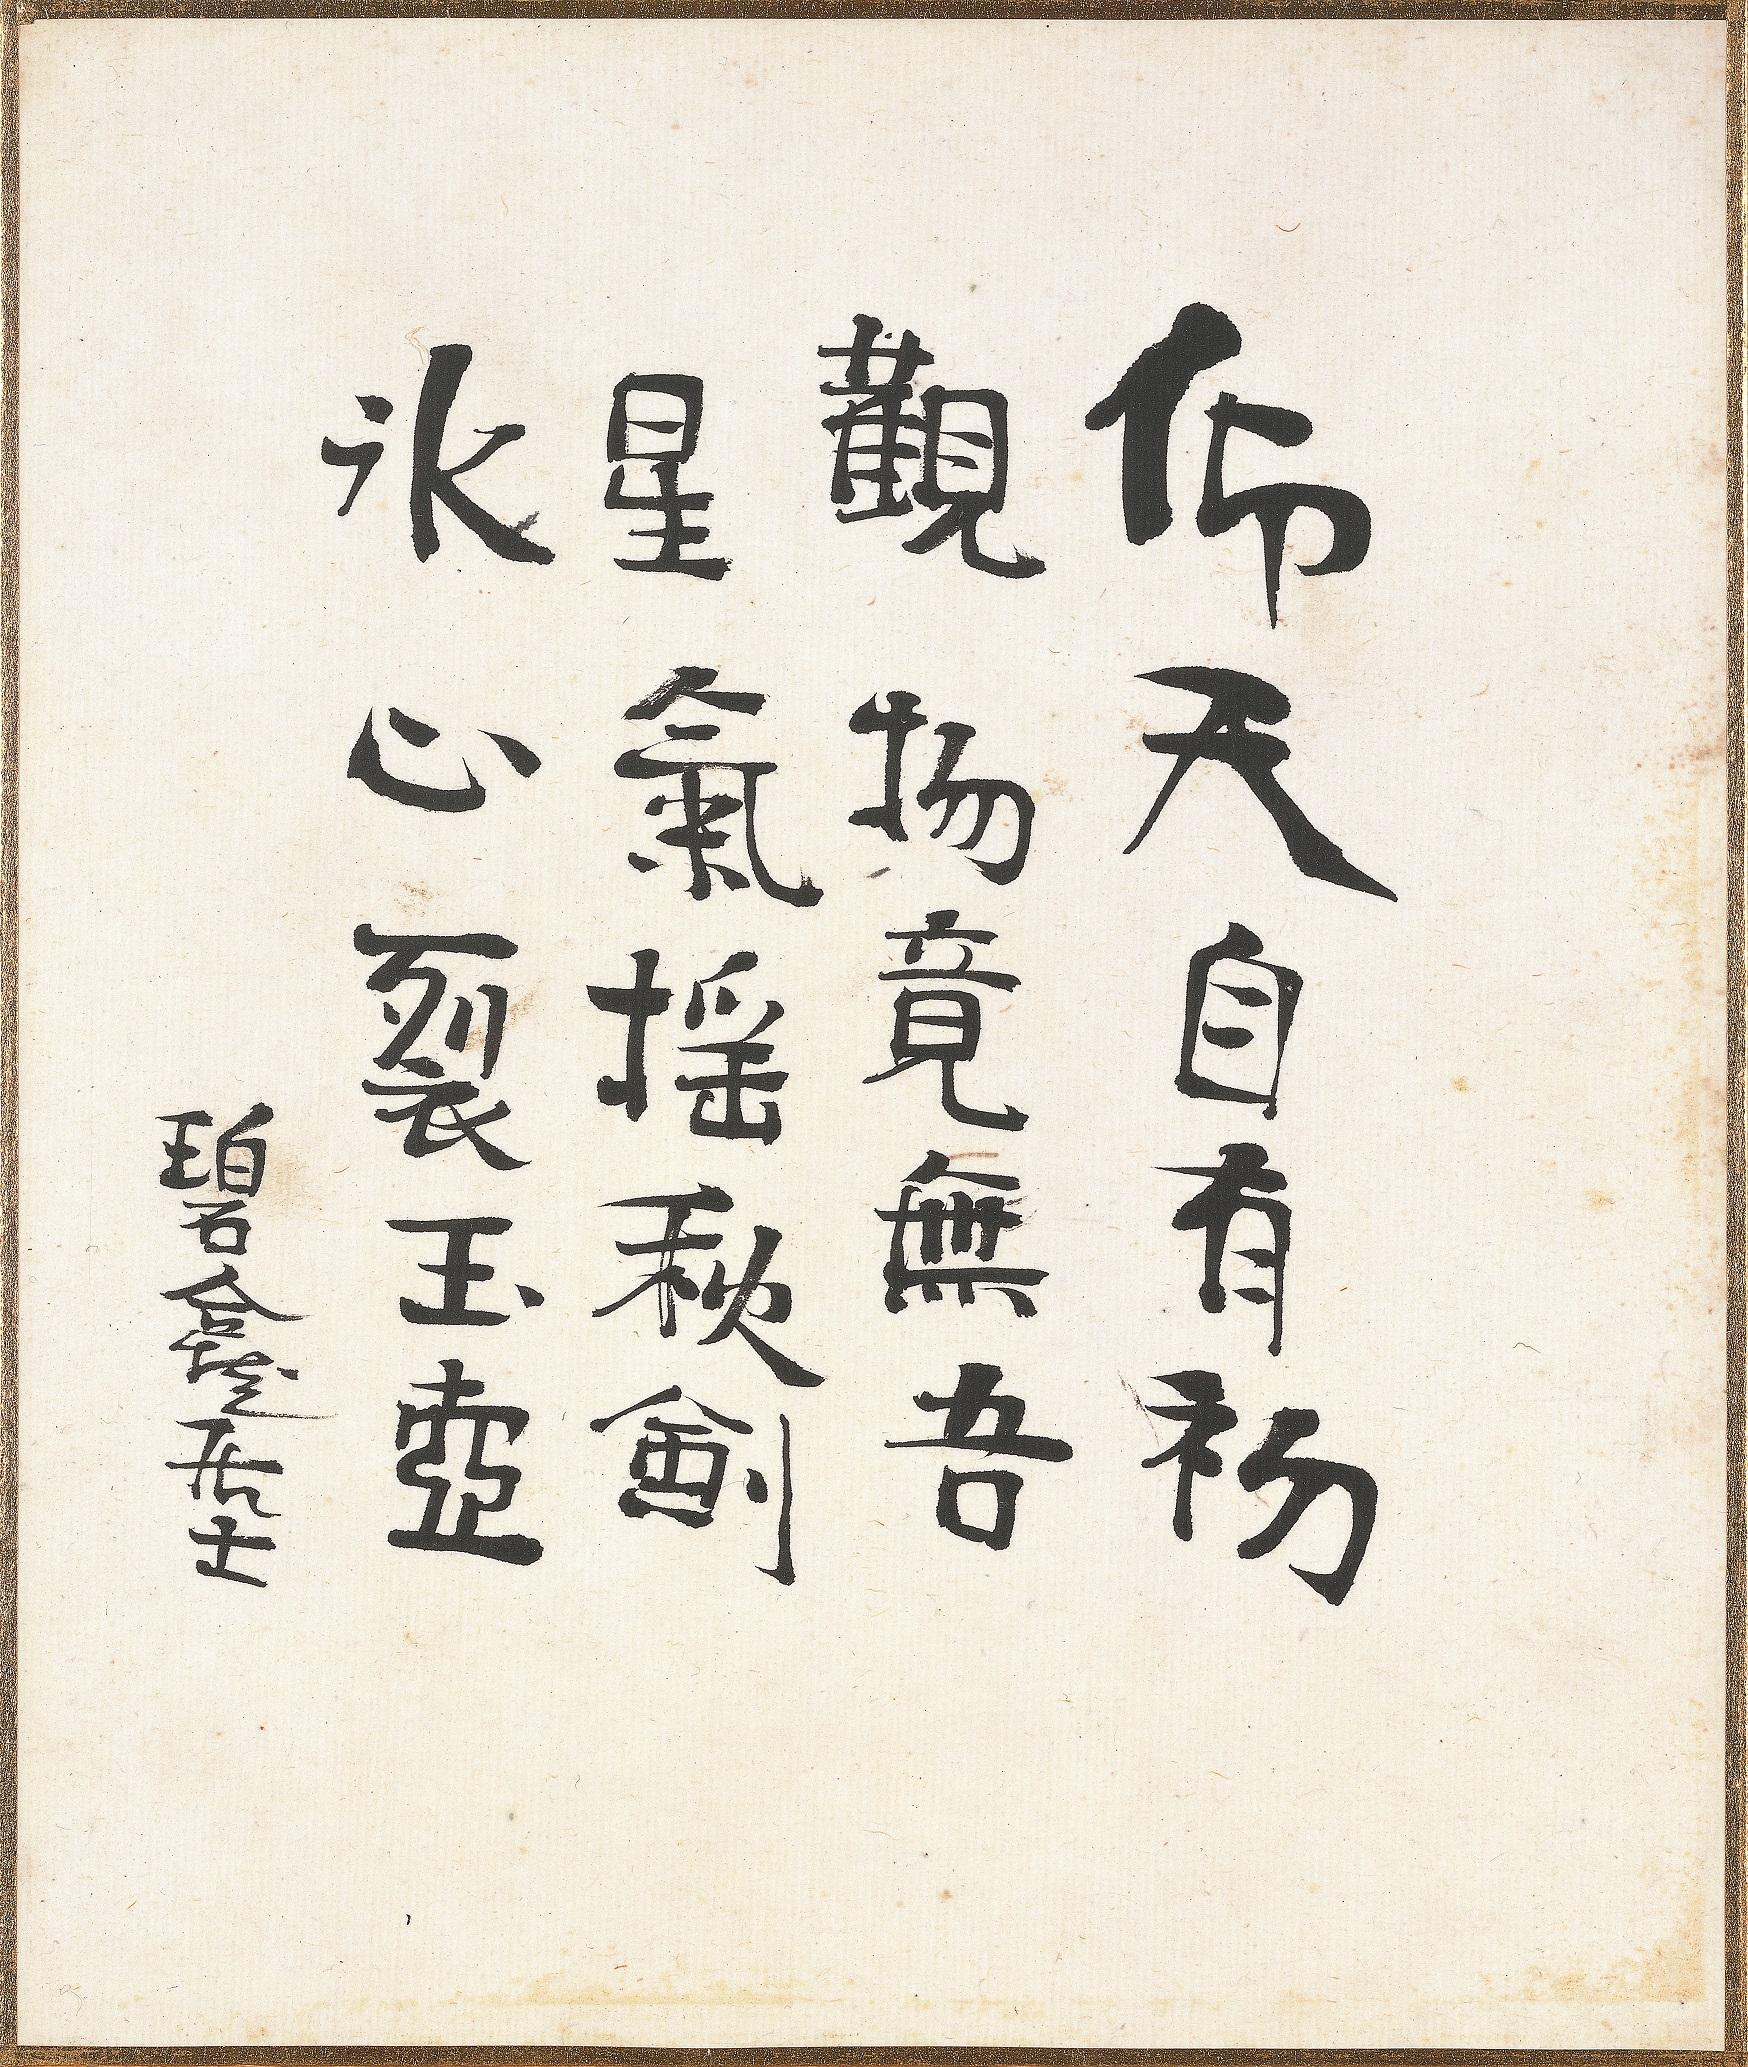 仰天自有初
觀物竟無吾
星氣搖秋劍
氷心裂玉壺
碧龕居士